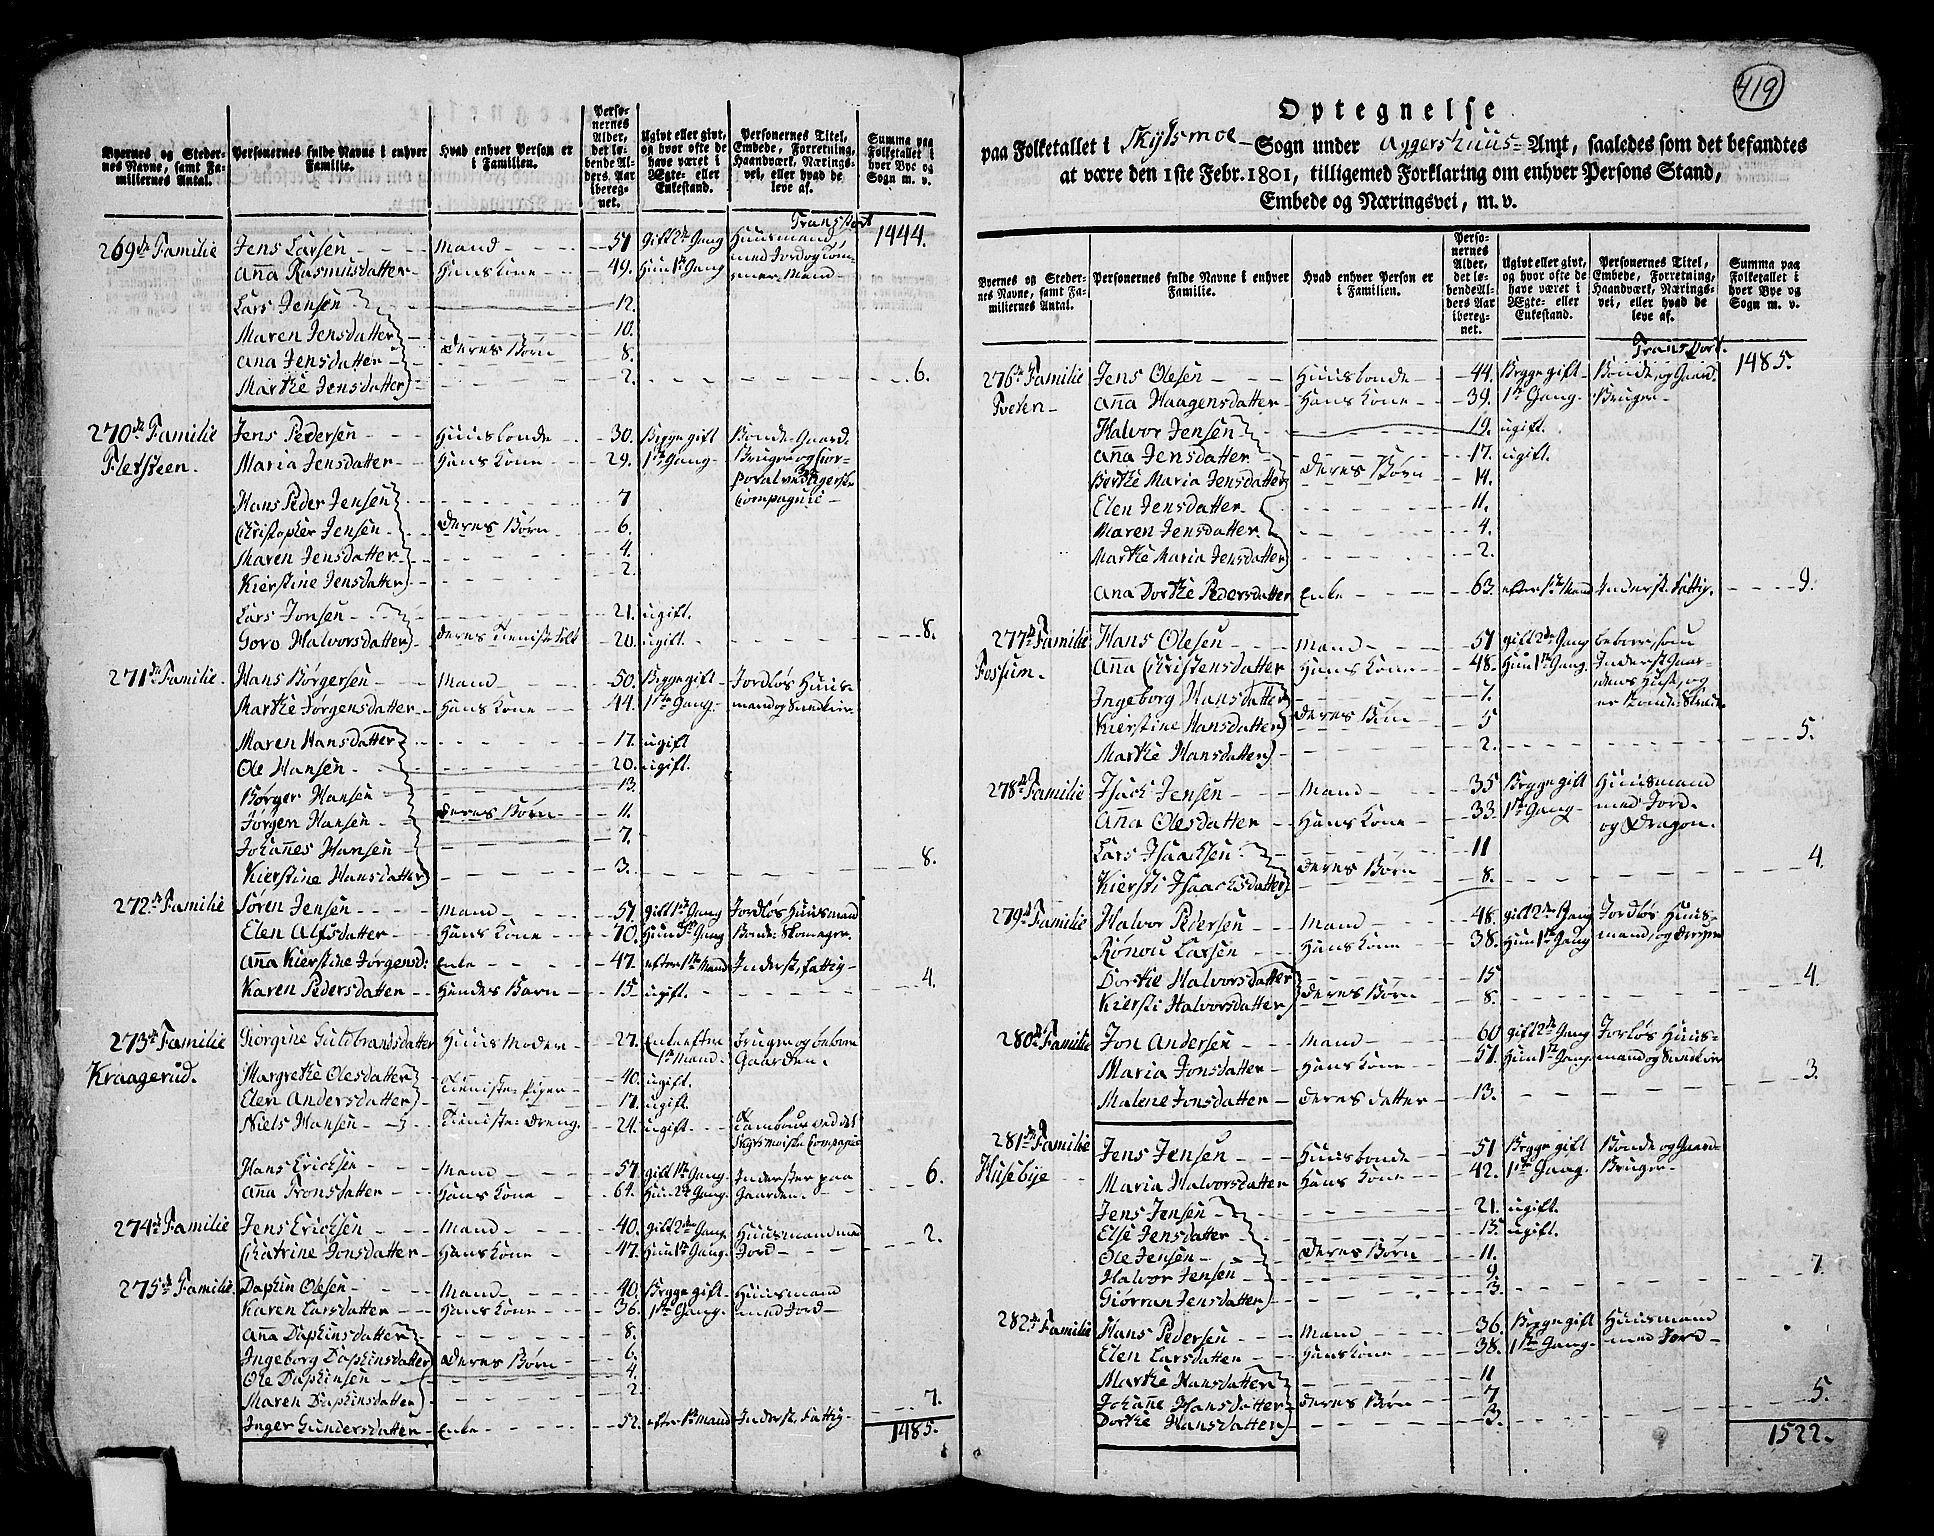 Byernes og Steder-
nes Navne, samt Fa-
millernes Antal.
Personernes fulde Navne i enhver
Familie.
Hvad enhver Person er
i Familien.
Perso-
nernes
Alder,
det lø-
bende Al-
ders Aar
iberegnet.
Ugivt eller givt,
og hvor ofte de
have været i
Ægte- eller
Enkestand.
Personernes Titel,
Embede, Forretning,
Haandværk, Nærings-
vei, eller hvad de
leve af.
Summa paa
Folketallet i
hver Bye og
Sogn m. v.
Transport 1444.
269de Familie Jens Larsen Mand 51 gift 2de Gang Huusmand
Anna Rasmusdatter Hans Kone 49. Hun 1ste Gang med Jord og Tøm-
mer Mand
Lars Jensen 12.
Maren Jensdatter 10.
Ana Jensdatter Deres Børn 8.
Marthe Jensdatter 2. 6.
270de Familie Jens Pedersen Huusbonde 30. Begge gift Bonde Gaard
Fletsteen. Maria Jensdatter Hans Kone 29. 1ste Gang Bruger og Cor-
poral ved
Hans Peder Jensen 7 Compagnie
Christopher Jensen Deres Børn 6.
Maren Jensdatter 4.
Kierstine Jensdatter 2.
Lars Jonsen 21. ugift.
Goro Halvorsdatter Deres Tieniste Folk 20. ugift. 8.
271de Familie Hans Børgersen Mand 50. Begge gift Jordløs Huus-
Marthe Jørgensdatter Hans Kone 44. 1ste Gang. mand og
Maren Hansdatter 17. ugift
Ole Hansen 20. ugift.
Børger Hansen 13.
Jørgen Hansen Deres Børn 11.
Johannes Hansen 7.
Kierstine Hansdatter 3. 8.
272de Familie Søren Jensen Mand 57. gift 1ste Gang Jordløs Huusmand
Elen Alfsdatter Hans Kone 70. Hun 3de Gang Bonde Skomager.
Anna Kierstine Jørgensd: Enke 47. efter 1ste Mand Inderst, fattig
Karen Pedersdatter Hendes Barn 15. ugift. 4.
273de Familie Giorgine Guldbrandsdatter Huus Moder 27. Enke efter bruger og beboer
Kraagerud. 1ste Mand. Gaarden.
Margrethe Olesdatter Tieniste piger 40. ugift.
Elen Andersdatter 17. ugift.
Niels Hansen Tieniste Dreng. 24. ugift Tambour ved det
Compagnie
Hans Ericksen Mand 57. gift 1ste Gang Inderster paa 6.
Anna Tronsdatter Hans Kone 64. Hun 2de Gang. Gaarden.
274de Familie Jens Ericksen Mand 40. gift 2de Gang. Huusmand med
Chatrine Jonsdatter Hans Kone 47. Hun 1ste Gang. Jord 2.
275de Familie Daphin Olesen Mand 40. Begge gift Huusmand
Karen Larsdatter Hans Kone 36. 1ste Gang. med Jord
Anna Daphinsdatter 8.
Ingeborg Daphinsdatter Deres Børn 6.
Ole Daphinsen 4.
Maren Daphinsdatter 2 7.
Inger Gundersdatter Enke 52. efter 1ste Mand Inderst, Fattig
1485.
419
Optegnelse
paa Folketallet i Skydsmoe Sogn under Aggershuus Amt, saaledes som det befandtes
at være den 1ste Febr. 1801, tilligemed Forklaring om enhver Persons Stand,
Embede og Næringsvei, m. v.
Byernes og Steder-
nes Navne, samt Fa-
miliernes Antal.
Personernes fulde Navne i enhver
Familie.
Hvad enhver Person er
i Familien.
Perso-
nernes
Alder,
det lø-
bende Al-
ders Aar
iberegnet.
Ugivt eller givt,
og hvor ofte de
have været i
Ægte- eller
Enkestand.
Personernes Titel,
Embede, Forretning,
Haandværk, Nærings-
vei, eller hvad de
leve af.
Summa paa
Folketallet i
hver Bye og
Sogn m. v.
Transport. 1485.
276de Familie Jens Olesen Huusbonde 44. Begge gift Bonde, og Gaard
Tveten Anna Haagensdatter Hans Kone 39. 1ste Gang. Bruger
Halvor Jensen 19. ugift.
Ana Jensdatter 17. ugift.
Berthe Maria Jensdatter Deres Børn 14.
Elen Jensdatter 11.
Maren Jensdatter 4.
Marthe Maria Jensdatter 2.
Ana Dorthe Pedersdatter Enke 63. efter 1ste Mand Inderst. fattig. 9.
277de Familie Hans Olesen Mand 51 gift 2de Gang beboer, som
Fossum. Anna Christensdatter Hans Kone 48. Hun 1ste Gang. Inderst Gaar-
Ingeborg Hansdatter 7. dens Huse, og
Kierstine Hansdatter Deres Børn 5 er Bonde
Marthe Hansdatter 2. 5.
278de Familie Isach Jensen Mand 35 Begge gift Huusmand
Anna Olesdatter Hans Kone 33. 1ste Gang med Jord
og Dragon.
Lars Isachsen Deres Børn 11 4.
Kiersti Isachsdatter 8.
279de Familie Halvor Pedersen Mand 48. gift 2de Gang Jordløs Huus-
Rønou Larsen Hans Kone 38. Hun 1ste Gang mand, og
Dorthe Halvorsdatter Deres Børn 15 4.
Kiersti Halvorsdatter 8.
280de Familie Jon Andersen Mand 60 gift 2de Gang Jorløs Huus-
Maria Jonsdatter Hans Kone 51. Hun 1ste Gang. mand og
Malene Jonsdatter Deres datter 13. 3.
281de Familie Jens Jensen Huusbonde 51 Begge gift Bonde og Gaard
Husebye Maria Halvorsdatter Hans Kone 42. 1ste Gang. Bruger
Jens Jensen 21. ugift.
Else Jensdatter 15. ugift.
Ole Jensen Deres Børn 11.
Halvor Jensen 9. 7.
Giørran Jensdatter 3.
282de Familie Hans Pedersen Mand 36. Begge gift Huusmand
Elen Larsdatter Hans Kone 38. 1ste Gang. med Jord
Marthe Hansdatter 11
Johanne Hansdatter Deres Børn 7 5.
Dorthe Hansdatter 3.
1522.